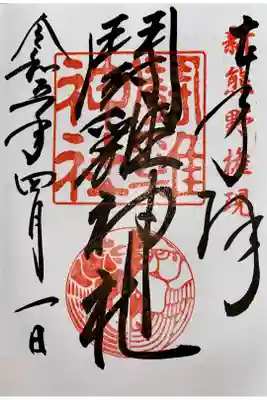 奉拝
新熊野権現
闘雞神社
闘雞神社
令和五年四月一日